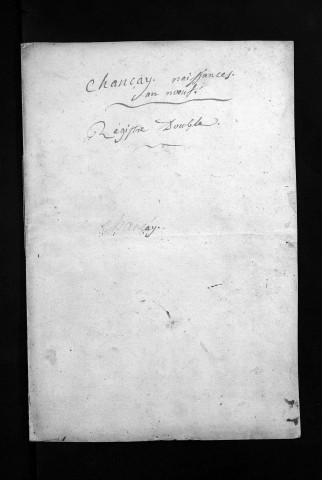 Chançay. naissances.
an neuf.
Régistre Double.
Chançay.